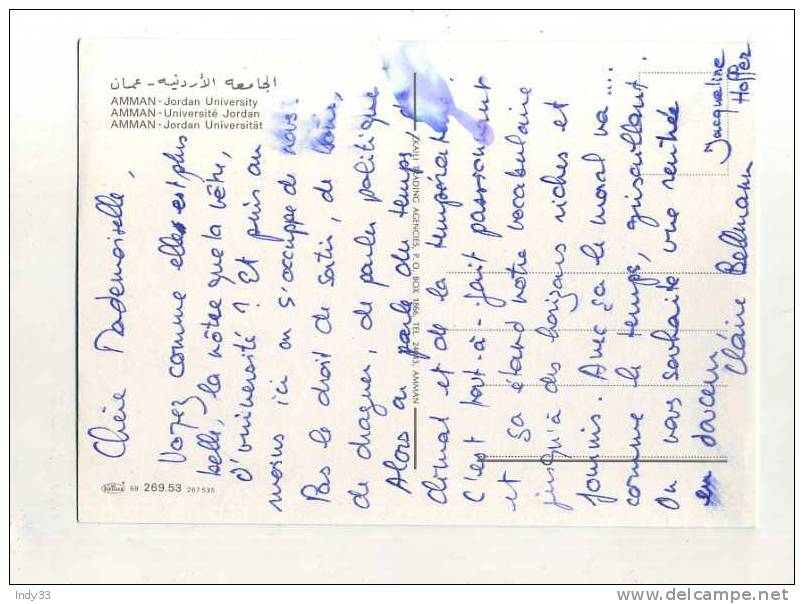 الجامعه الأردنيه - عمان
AMMAN - Jordan University
AMMAN - Université Jordan
AMMAN - Jordan Universität
Chère Mademoiselle,
Voyez comme elle est plus
belle, la nôtre que la vôtre,
d'université ? Et puis au
moins ici on s'occupe de nous !
Pas le droit de sortir, de boire,
de draguer, de parler politique
Alors on parle du temps, du
climat et de la température.
C'est tout-à-fait passionnant
et ça étend notre vocabulaire
jusqu'à des horizons riches et
fournis. Avec ça le moral va....
comme le temps, grisaillant.
On vous souhaite une rentrée
en douceur
Claire Bellmann
Jacqueline
Hoffer
TRADING AGENCIES, P. O. BOX 1866, TEL. AMMAN
99 269.53 267 535
Indy33
delcampe.net